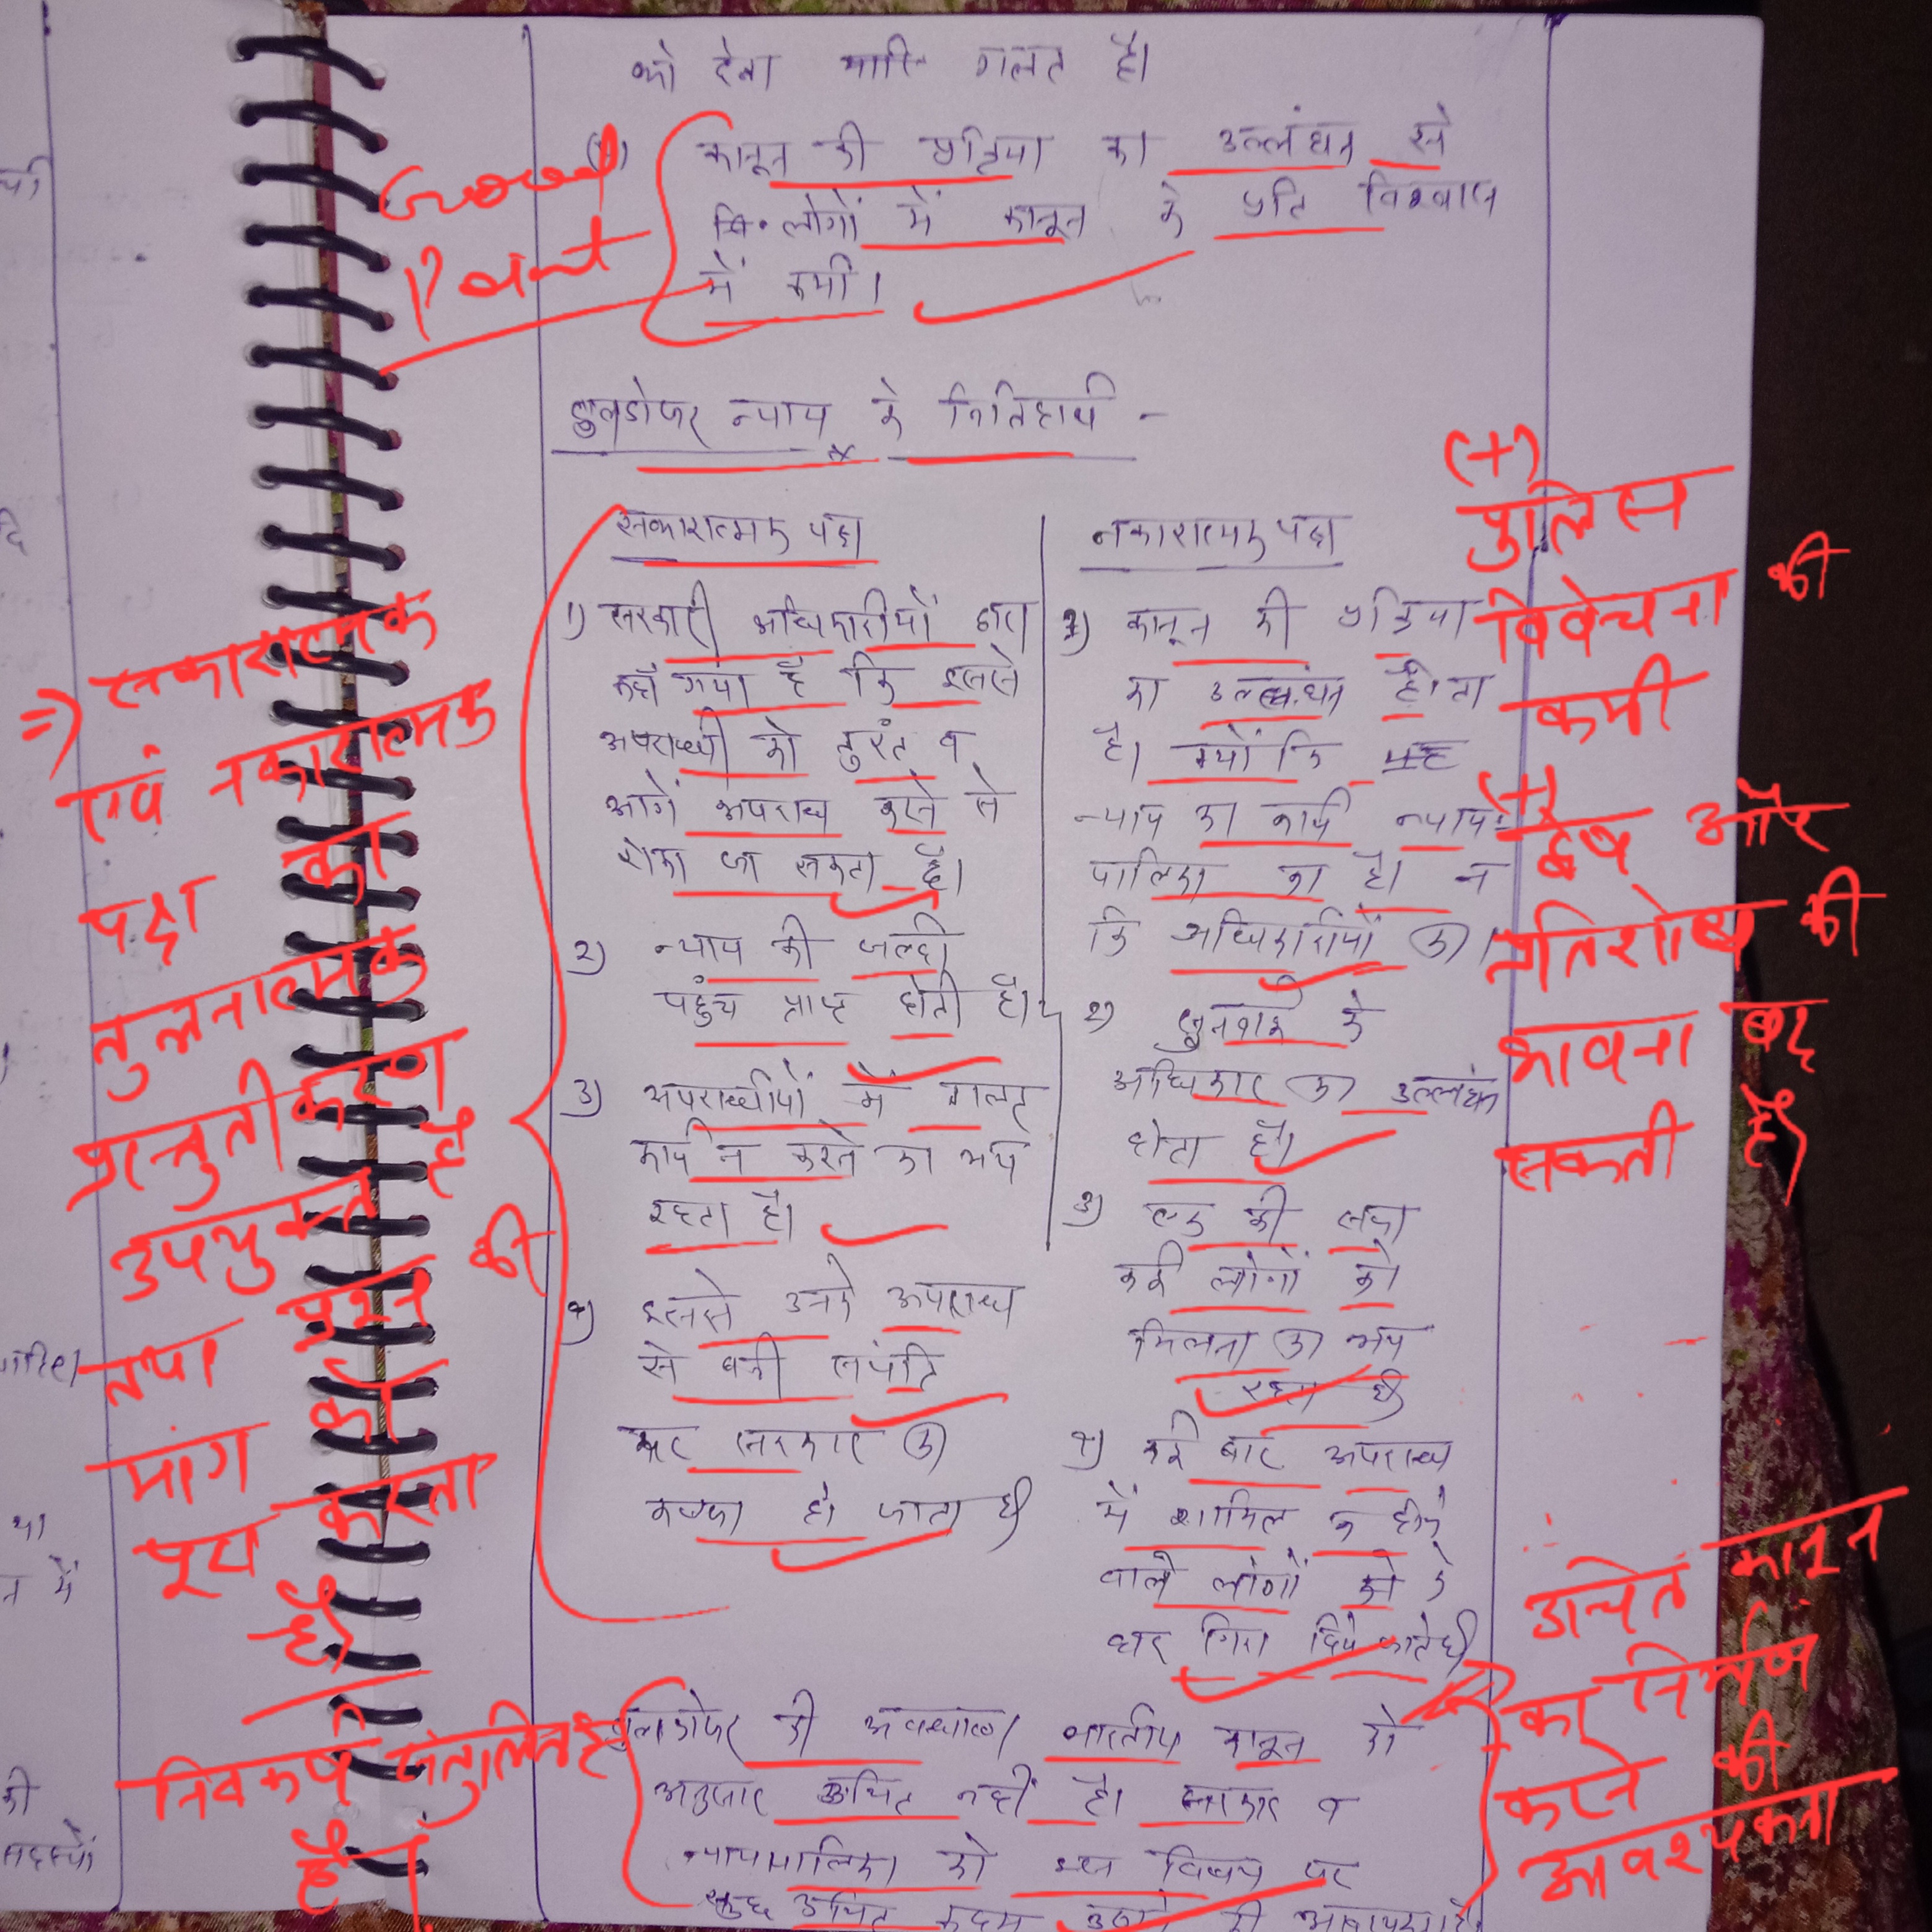 को देना भारि गलत है।
(4) कानून की प्रक्रिया का उल्लंघन से
लोगों में कानून के प्रति विश्वास
में कमी।
Good
Point
बुलडोजर न्याय के निहितार्थ -
सकारात्मक पक्ष
1) सरकारी अधिकारीयों द्वारा
कहाँ गया है कि इससे
अपराधी को तुरंत व
आगे अपराध करने से
रोका जा सकता है।
2) न्याय की जल्दी
पहुंच प्राप्त होती है।
3) अपराधीयों में गलत
कार्य न करने का भय
रहता है।
4) इससे उनके अपराध
से बनी संपत्ति
पर सरकार का
कब्जा हो जाता है
नकारात्मक पक्ष
1) कानून की प्रक्रिया
का उल्लंघन होता
है। क्यों कि यह
न्याय का कार्य न्याय
पालिका का है। न
कि अधिकारीयों का।
2) सुनवाई के
अधिकार का उल्लंघन
होता है।
3) एक की सजा
कई लोगों को
मिलना का भय
रहता है
4) कई बार अपराध
में शामिल न होने
वाले लोगों को के
घर गिरा दिये जाते है
बुलडोजर की अवधारणा भारतीय कानून के
अनुसार उचित नहीं है। सरकार व
न्यायपालिका को इस विषय पर
कुछ उचित कदम उठाने की आवश्यकता है।
=) सकारात्मक
एवं नकारात्मक
पक्ष का
तुलनात्मक
प्रस्तुतीकरण
उपयुक्त है
तथा प्रश्न की
मांग को
पूरा करता
है।
निष्कर्ष संतुलित है
है।
(+)
पुलिस
विवेचना की
कमी
(+)
द्वेष और
प्रतिशोध की
भावना बढ़
सकती है)
उचित कानून
का निर्माण
करने की
आवश्यकता